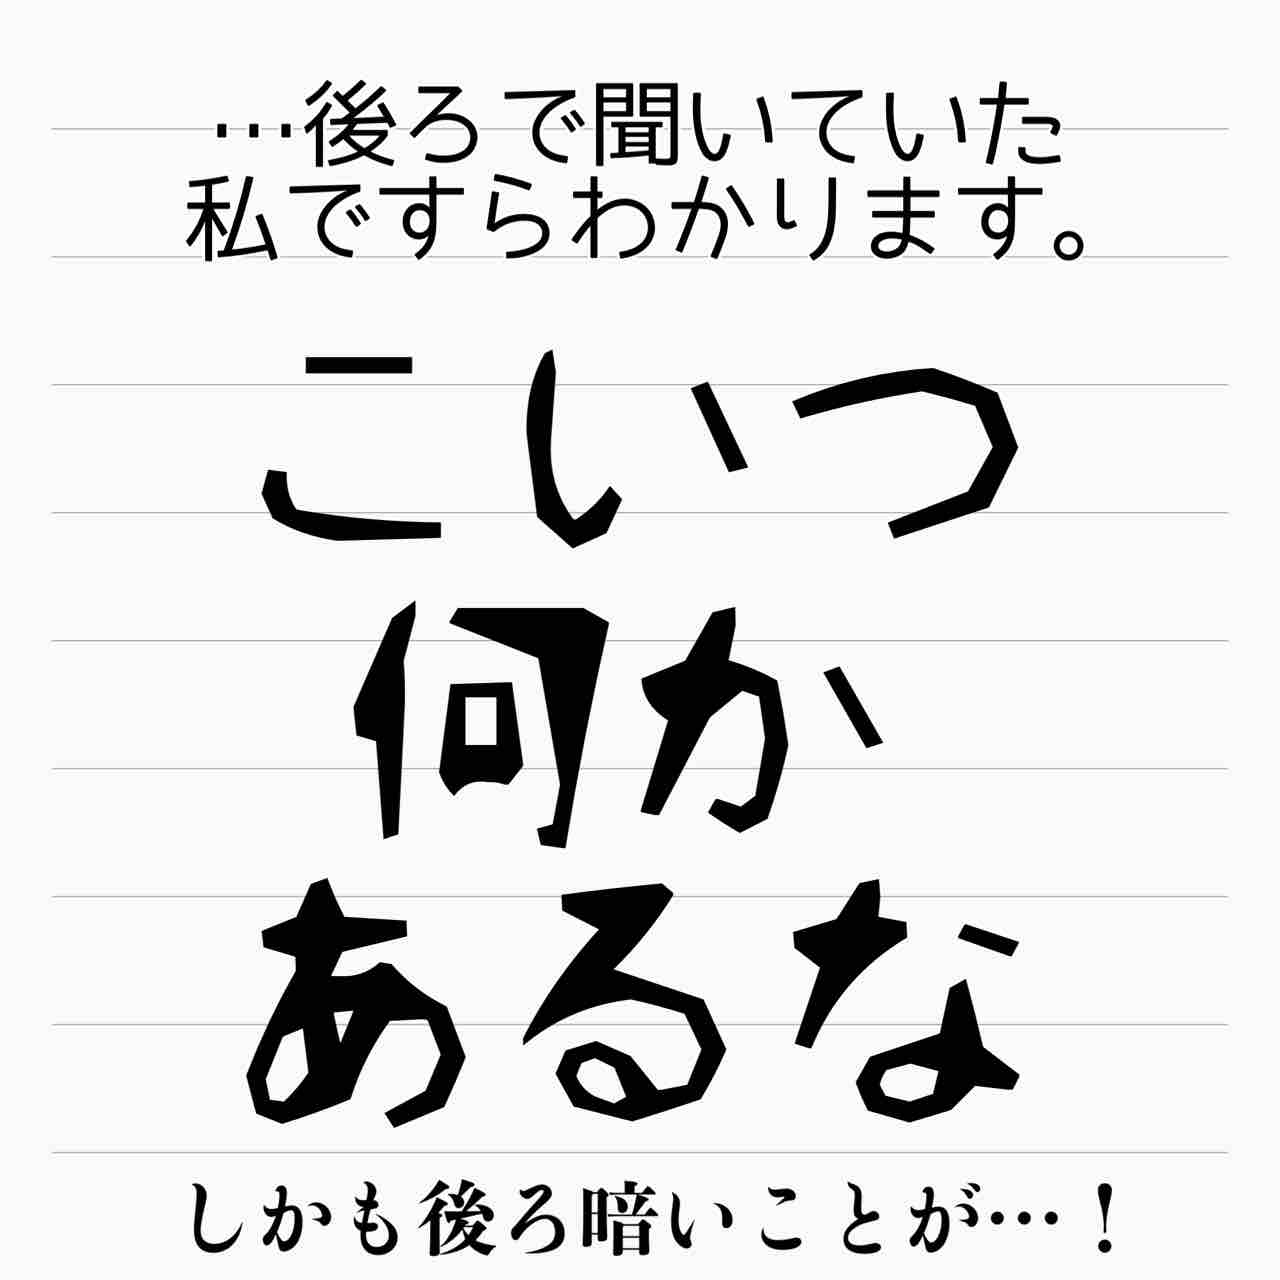 …後ろで聞いていた
私ですらわかります。
こいつ
何か
あるな
しかも後ろ暗いことが…！